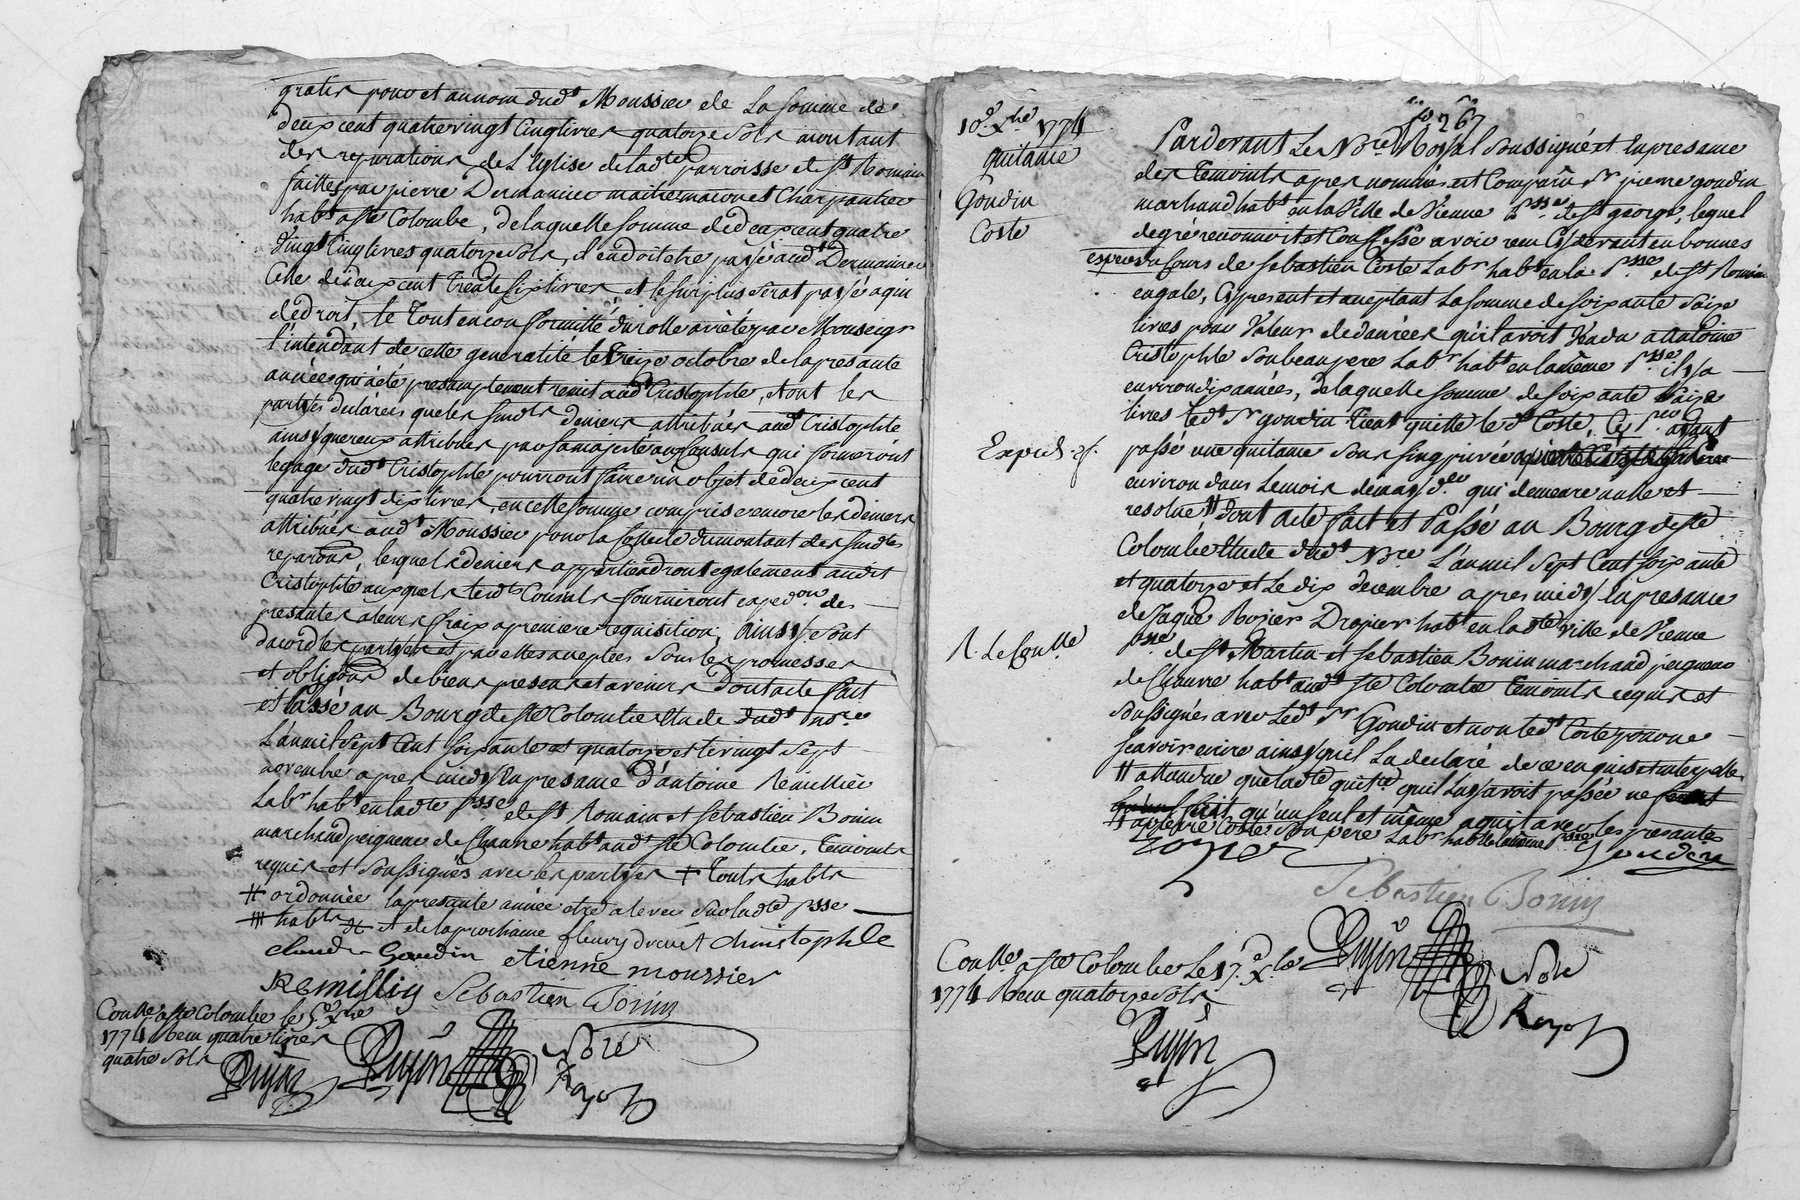 gratis pour et au nom dudt Moussier de La somme de
deux cent quatre vingt Cinq livres quatorze Sols montant
des reparations de L'Eglise de ladte parroisse de St Romain
faittes par pierre Dermanier maitre macon et Charpantier
habt a ste Colombe, de laquelle somme de deux cent quatre
Vingt Cinq livres quatorze Sols, il en doit etre payé audt Dermanier
Celle de deux cent Trente Six livres et le surplus serat payé a qui
de droit, le Tout en conformitté du rolle arrété par Monseigr
l'intendant de cette generalité le octobre de la presante
année qui a été presamptement remit audt Cristophle, dont les
parties declarées que les susdts deniers attribués audt Cristophle
ainsy que ceux attribués par sa majesté aux Consuls qui formeront
le gage dudt Cristophle pourront faire un objet de deux cent
quatre vingt dix livres, en cette somme compris encore les deniers
attribués audt Moussier pour la Collecte du montant des susdtes
reparaons, lesquels deniers appartiendront egalement audit
Cristophle auxquels lesdts Consuls fourniront expedon des
presantes a leurs fraix a premiere requisition, ainsy sont
dacord les parties et par elles acceptées Sous les promesses
et obligaons de biens presens et avenirs Dont acte fait
et Passé au Bourg de Ste Colombe Etude dudt nore
L'an mil Sept Cent soixante et quatorze et le vingt Sept
novembre apres midy En presance d'antoine Remillier
Labr habt en ladte psse de St Romain et Sebastien Bonin
marchand peigneur de Chanvre habt audt Ste Colombe, Temoints
requis et Soussignés avec les parties + Touts habts
# ordonnée la presante année etre alevée Sur ladte psse
habts et de la prochaine fleury drevet christophle
claude Goudin etienne moussier
Remilliy Sebastien Bonin
Conllé a Ste Colombe le 5e Xbre
1774 Receu quatre livres
quatre Sols
Dujin Dujin Nore
Royal
fo 26
10e Xbre 1774
quitance
Goudin
Coste
Pardevant Le Nore Royal Soussigné et En presance
des Temoints apres nommés est Comparu Sr pierre goudin
marchand habt en la Ville de Vienne psse de St george, lequel
de gré reconnoit et Confesse avoir receu Cy devant en bonnes
especes du Cours de Sebastien Coste Labr habt en la psse de St Romain
en gale, Cy present et aceptant La somme de Soixante Saize
livres pour Valeur de danrées qu'il avoit Vendu a antoine
Cristophle Son beau pere Labr habt en la même psse il y a
environ dix années, de laquelle somme de Soixante Saize
livres ledt Sr goudin Tient quitte le dt Coste, Cy avant
passé une quitance Sous Sing privée
environ dans Le mois de may der qui demeure nulle et
resolüe # Dont acte fait et Passé au Bourg de Ste
Colombe Etude dudt Nore L'an mil Sept Cent Soixante
et quatorze et Le dix decembre apres midy En presance
de Jaque Rozier Drapier habt en ladte ville de Vienne
psse de St Martin et Sebastien Bonin marchand peigneur
de Chanvre habt audt Ste Colombe Temoints requis et
Soussignés avec Ledt Sr Goudin et non ledt Coste pour ne
Scavoir ecrire ainsy qu'il La declaré de ce enquis et interpellé
# attendue que ladte quitce quil luy avoit passée ne
fait qu'un seul et même aquit avec les presantes
a pierre Coste Son pere Labr habt de la même psse
Expedié
R. Le Conlle
rozier Goudin
Sebastien Bonin
Conllé a Ste Colombe Le 17e Xbre
1774 Receu quatorze Sols
Dujin Nore
Dujin Royal